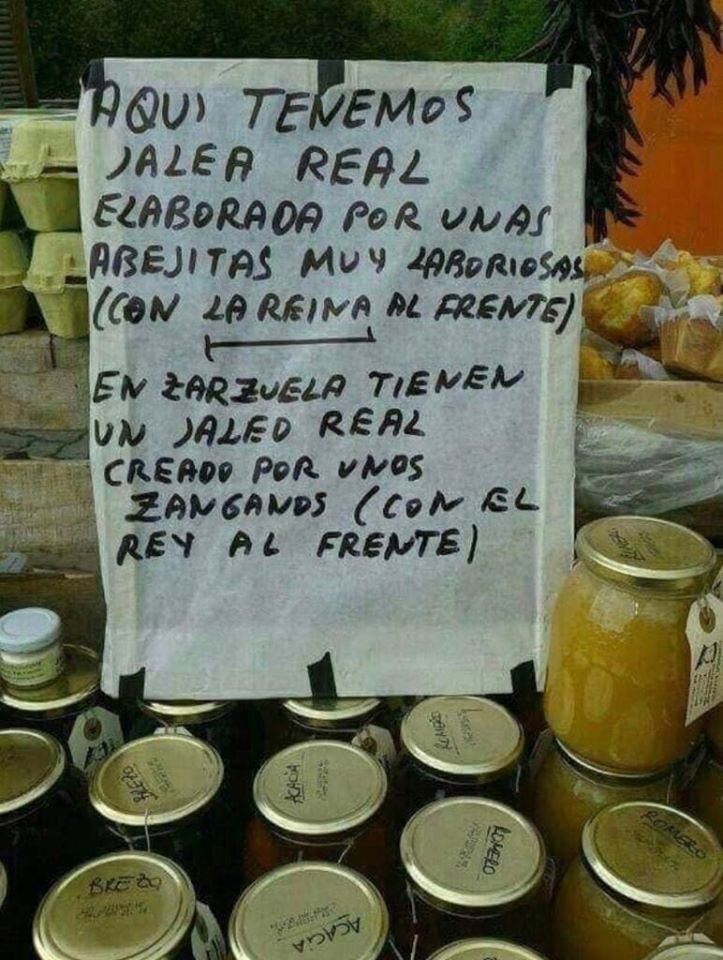 AQUI TENEMOS
JALEA REAL
ELABORADA POR UNAS
ABEJITAS MUY LABORIOSAS
(CON LA REINA AL FRENTE)
EN ZARZUELA TIENEN
UN JALEO REAL
CREADO POR UNOS
ZANGANOS (CON EL
REY AL FRENTE)
ROMERO
BREZO
ACACIA
ROMERO
ROMERO
BREZO
ACACIA